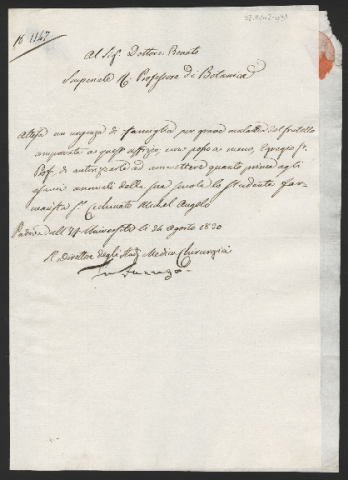 N 1147
Al Sig. Dottore Bonato
Supplente R. Professore di Botanica
Attesa un urgenza di famiglia per grave malattia del fratello
comprovata a quest'uffizio, come posso a meno, Egregio Sr.
Prof. di autorizzarlo ad ammettere quanto prima agli
esami annuali della sua scuola lo studente far-
maceista Sr. Michel Angelo
Padova dall' I. R. Università li 24 Agosto 1830
Il Direttore degli Studj Medico Chirurgici